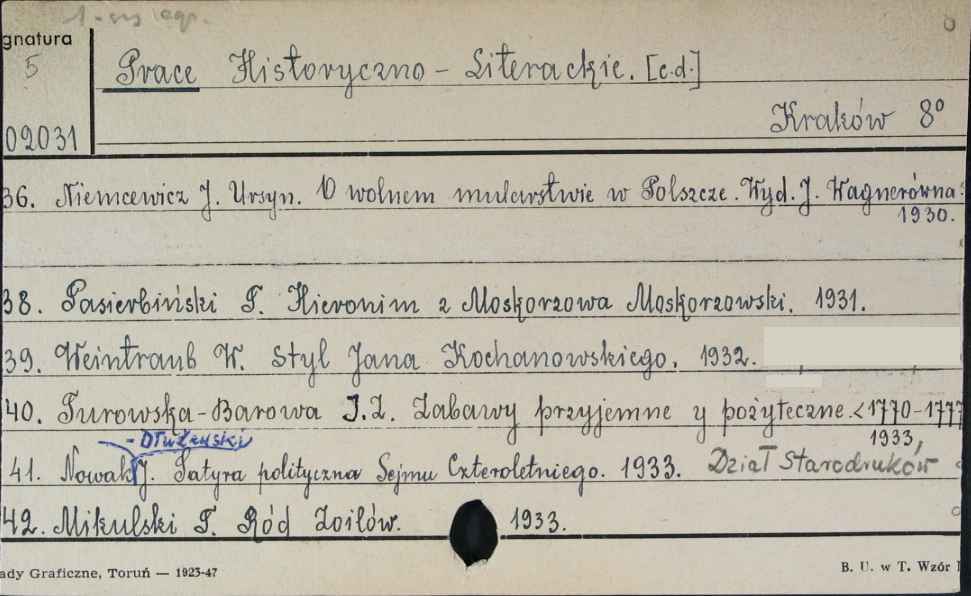 1-szy egz.
gnatura
5
Prace Historyczno - Literackie. [c.d.]
Kraków 8°
02031
36. Niemcewicz J. Ursyn. O wolnem mularstwie w Polszcze. Wyd. J. Wagnerówna.
1930.
38. Pasierbiński T. Hieronim z Moskorzowa Moskorzowski. 1931.
39. Weintraub W. Styl Jana Kochanowskiego. 1932.
40. Turowska-Barowa I.Z. Zabawy przyjemne y pożyteczne. <1770-1777
1933,
- Dłużewski
41. Nowak J. Satyra polityczna Sejmu Czteroletniego. 1933. Dział Starodruków
42. Mikulski T. Ród Zoilów. 1933.
ady Graficzne, Toruń — 1923-47
B. U. w T. Wzór